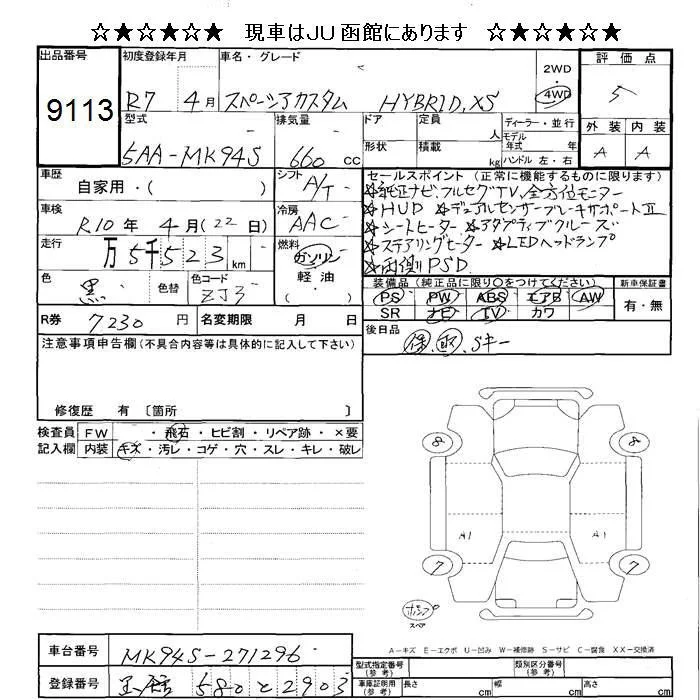 ☆★☆★☆★ 現車はJU函館にあります ☆★☆★☆★
出品番号
9113
初度登録年月
R7 4月
車名・グレード
スペーシアカスタム HYBRID,XS
2WD
・
4WD
評価点
5
外装 内装
A A
型式
5AA-MK94S
排気量
660 cc
ドア
形状
定員
人
積載
kg
ディーラー・並行
モデル
年式 年
ハンドル 左・右
車歴
自家用・( )
シフト
A/T
車検
R10年 4月(22日)
冷房
AAC
走行
万5千523 km
燃料
ガソリン
軽油
( )
色
黒
色替
色コード
ZJ3
R券 7230 円
名変期限 月 日
セールスポイント (正常に機能するものに限ります)
☆純正ナビ,フルセグTV,全方位モニター
☆HUD ☆デュアルセンサーブレーキサポートⅡ
☆シートヒーター ☆アダプティブクルーズ
☆ステアリングヒーター ☆LEDヘッドランプ
☆両側PSD
装備品 (純正品に限り○をつけてください)
PS PW ABS エアB AW
SR ナビ TV カワ
新車保証書
有・無
後日品
保,取,Sキー
注意事項申告欄 (不具合内容等は具体的に記入して下さい)
修復歴 有 〔箇所 〕
検査員 FW ・飛石・ヒビ割・リペア跡・×要
記入欄 内装 キズ・汚レ・コゲ・穴・スレ・キレ・破レ
8 8
A1 A1
7 7
スペア
A-キズ E-エクボ U-凹み W-補修跡 S-サビ C-腐食 XX-交換済
車台番号 MK94S-271296
登録番号 580 と 2903
型式指定番号
(参考)
類別区分番号
(参考)
車庫証明用
(参考)
長さ cm
幅 cm
高さ cm